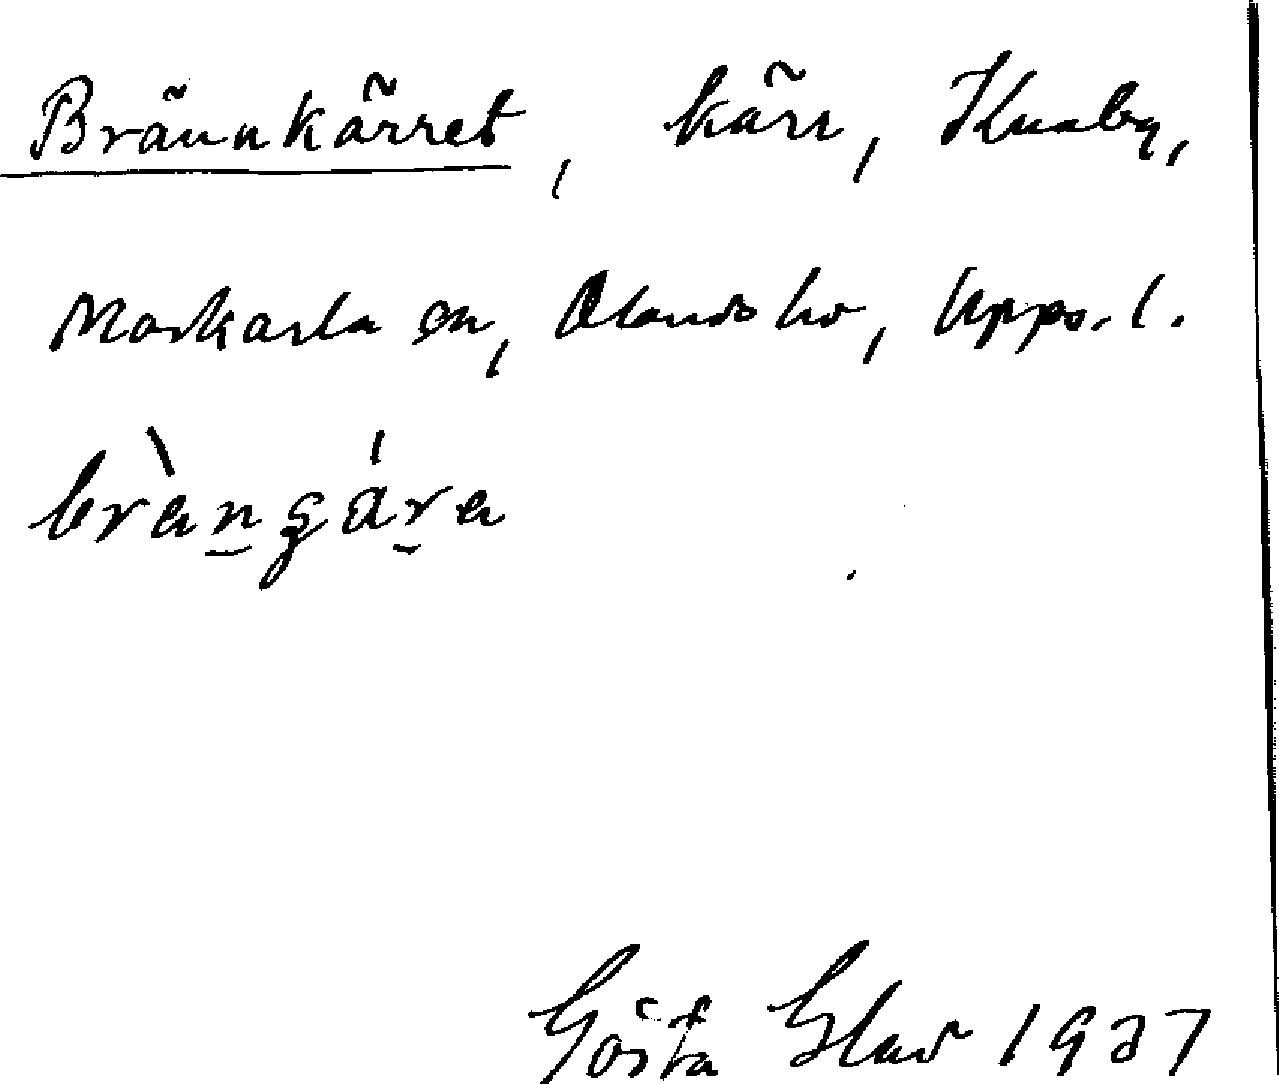 Brännkärret, kärr, Knaby,
Morkarla sn, Olands hd, Upps. l.
bràngára
Gösta 1937